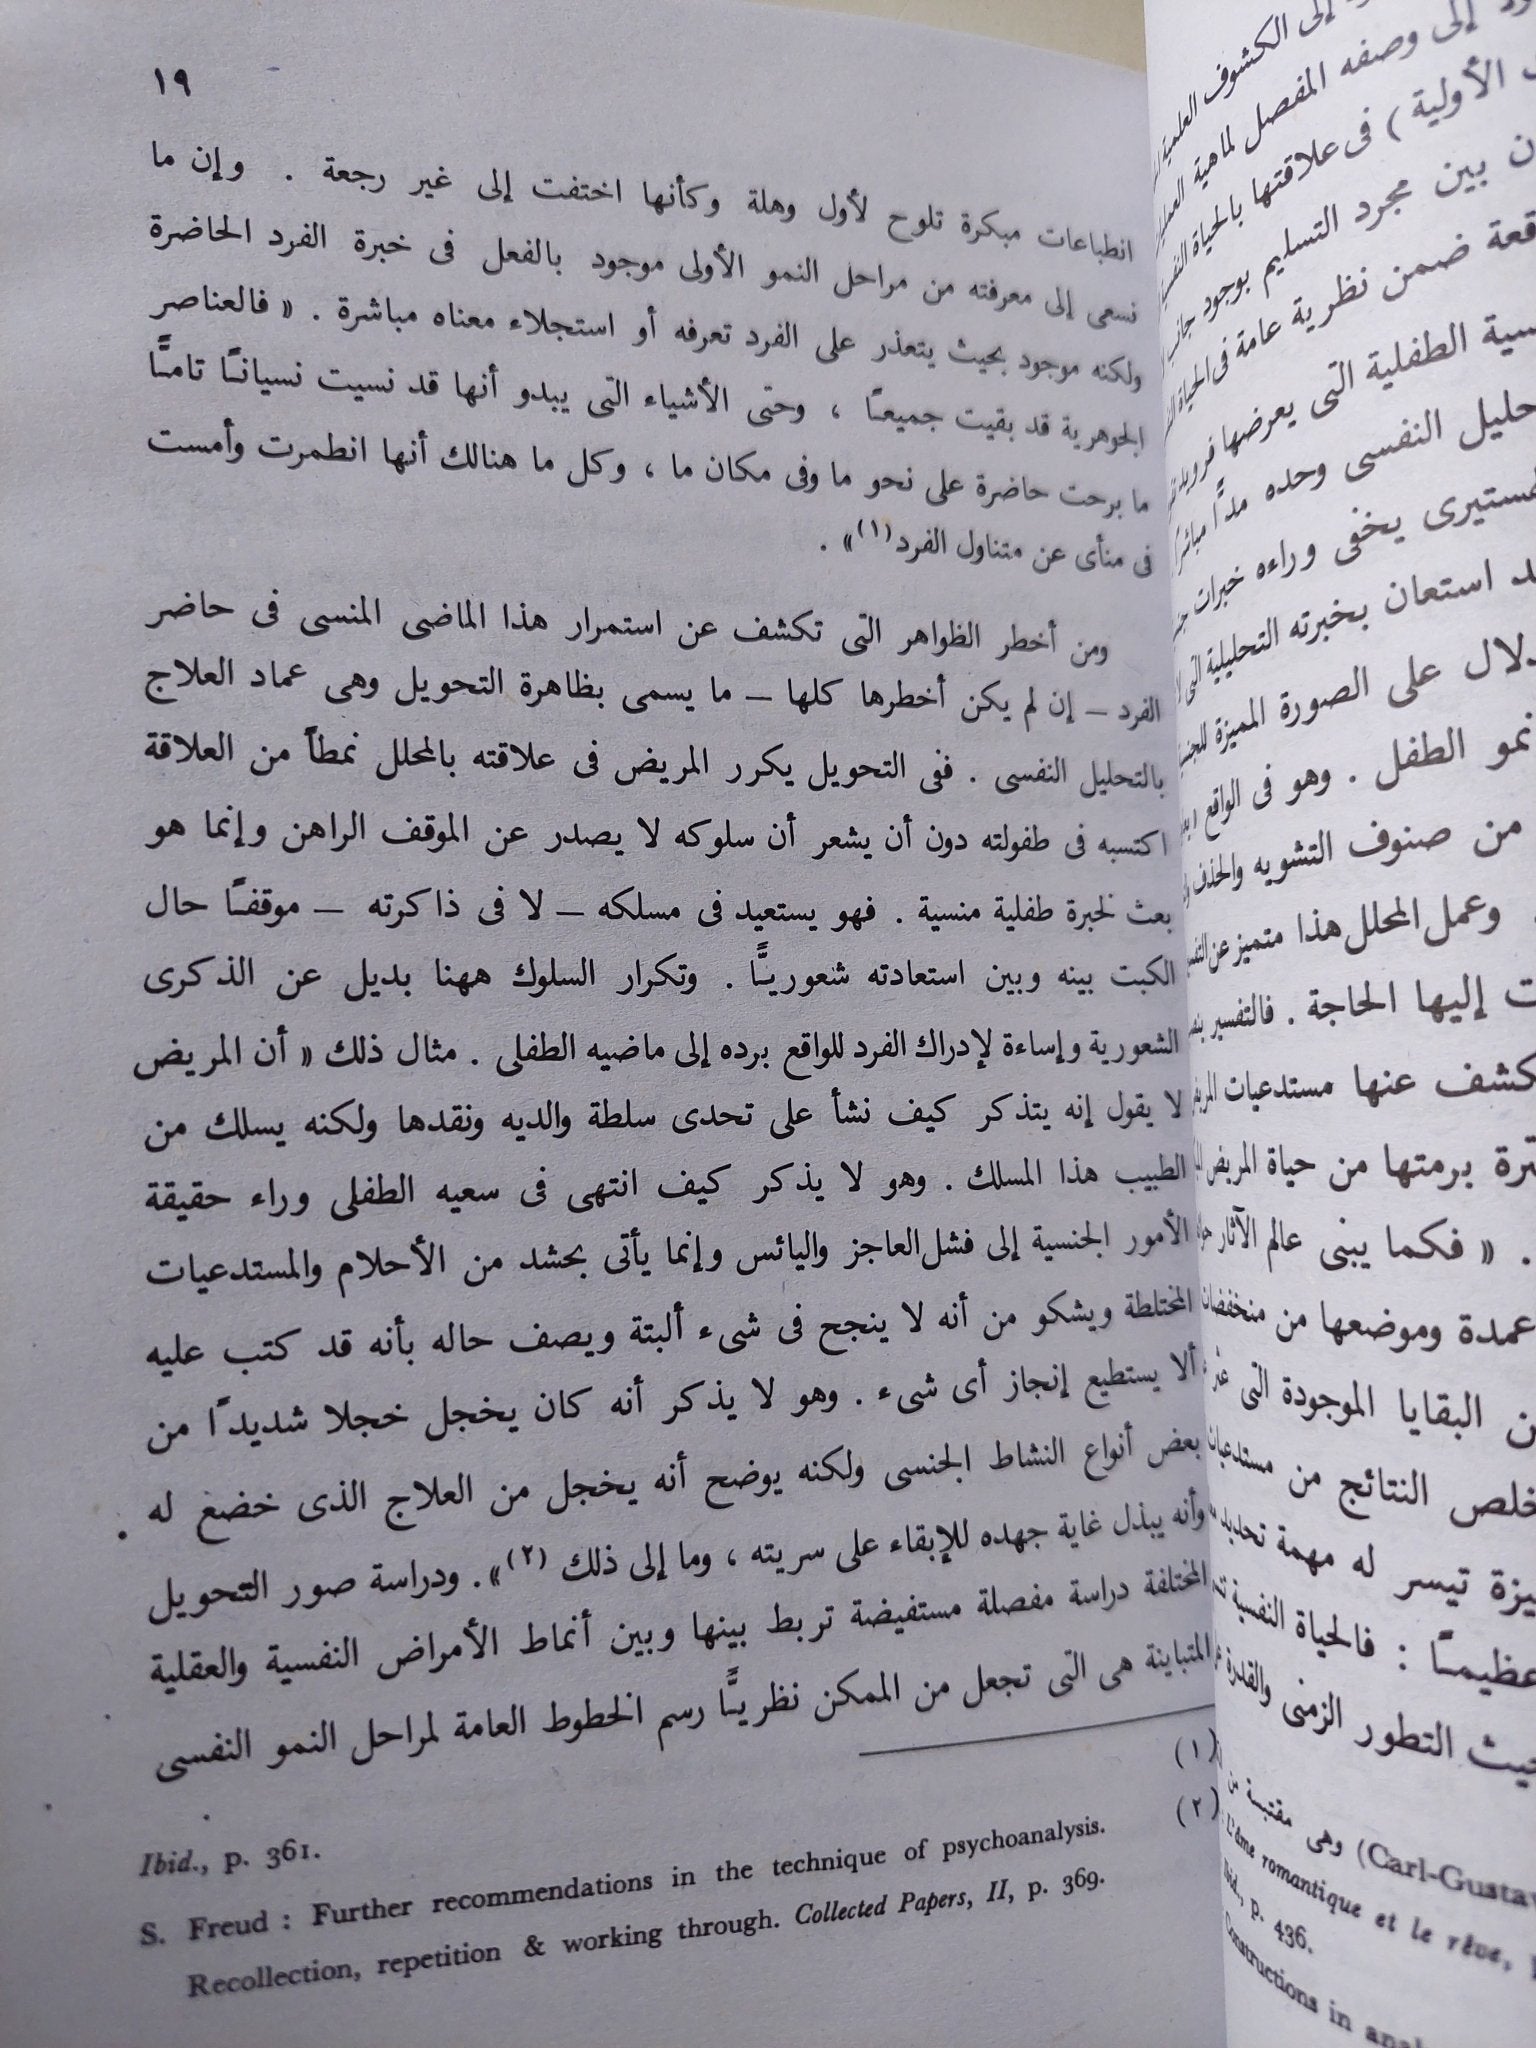 ١٩
انطباعات مبكرة تلوح لأول وهلة وكأنها اختفت إلى غير رجعة . وإن ما
نسعى إلى معرفته من مراحل النمو الأولى موجود بالفعل فى خبرة الفرد الحاضرة
ولكنه موجود بحيث يتعذر على الفرد تعرفه أو استجلاء معناه مباشرة . « فالعناصر
الجوهرية قد بقيت جميعـًا ، وحتى الأشياء التى يبدو أنها قد نسيت نسيانـًا تامـًّا
ما برحت حاضرة على نحو ما وفى مكان ما ، وكل ما هنالك أنها انطمرت وأمست
فى منأى عن متناول الفرد (١) » .
ومن أخطر الظواهر التى تكشف عن استمرار هذا الماضى المنسى فى حاضر
الفرد – إن لم يكن أخطرها كلها – ما يسمى بظاهرة التحويل وهى عماد العلاج
بالتحليل النفسى . ففى التحويل يكرر المريض فى علاقته بالمحلل نمطاً من العلاقة
اكتسبه فى طفولته دون أن يشعر أن سلوكه لا يصدر عن الموقف الراهن وإنما هو
بعث لخبرة طفلية منسية . فهو يستعيد فى مسلكه – لا فى ذاكرته – موقفـًا حال
الكبت بينه وبين استعادته شعوريـًّا . وتكرار السلوك ههنا بديل عن الذكرى
الشعورية وإساءة لإدراك الفرد للواقع برده إلى ماضيه الطفلى . مثال ذلك « أن المريض
لا يقول إنه يتذكر كيف نشأ على تحدى سلطة والديه ونقدها ولكنه يسلك من
الطبيب هذا المسلك . وهو لا يذكر كيف انتهى فى سعيه الطفلى وراء حقيقة
الأمور الجنسية إلى فشل العاجز واليائس وإنما يأتى بحشد من الأحلام والمستدعيات
المختلطة ويشكو من أنه لا ينجح فى شىء ألبتة ويصف حاله بأنه قد كتب عليه
ألا يستطيع إنجاز أى شىء . وهو لا يذكر أنه كان يخجل خجلا شديدًا من
بعض أنواع النشاط الجنسى ولكنه يوضح أنه يخجل من العلاج الذى خضع له
وأنه يبذل غاية جهده للإبقاء على سريته ، وما إلى ذلك (٢) » . ودراسة صور التحويل
المختلفة دراسة مفصلة مستفيضة تربط بينها وبين أنماط الأمراض النفسية والعقلية
المتباينة هى التى تجعل من الممكن نظريـًّا رسم الخطوط العامة لمراحل النمو النفسى
(١) Ibid., p. 361.
(٢) S. Freud : Further recommendations in the technique of psychoanalysis.
Recollection, repetition & working through. Collected Papers, II, p. 369.
إلى الكشوف العلمية
إلى وصفه المفصل لماهية
الأولية ) فى علاقتها بالحياة
بين مجرد التسليم بوجود
ضمن نظرية عامة فى الحياة
الطفلية التى يعرضها فرويد
النفسى وحده مدًّا
يخفى وراءه خبرات
استعان بخبرته التحليلية التى
على الصورة المميزة
نمو الطفل . وهو فى الواقع
من صنوف التشويه والحذف
وعمل المحلل هذا متميز عن
إليها الحاجة . فالتفسير
عنها مستدعيات
برمتها من حياة المريض
. « فكما يبنى عالم الآثار
وموضعها من
البقايا الموجودة التى
النتائج من
تيسر له مهمة تحديد
: فالحياة النفسية
التطور الزمنى والقدرة
(Carl-Gustav وهى مقتبسة من
L'âme romantique et le rêve,
Ibid., p. 436.
Constructions in